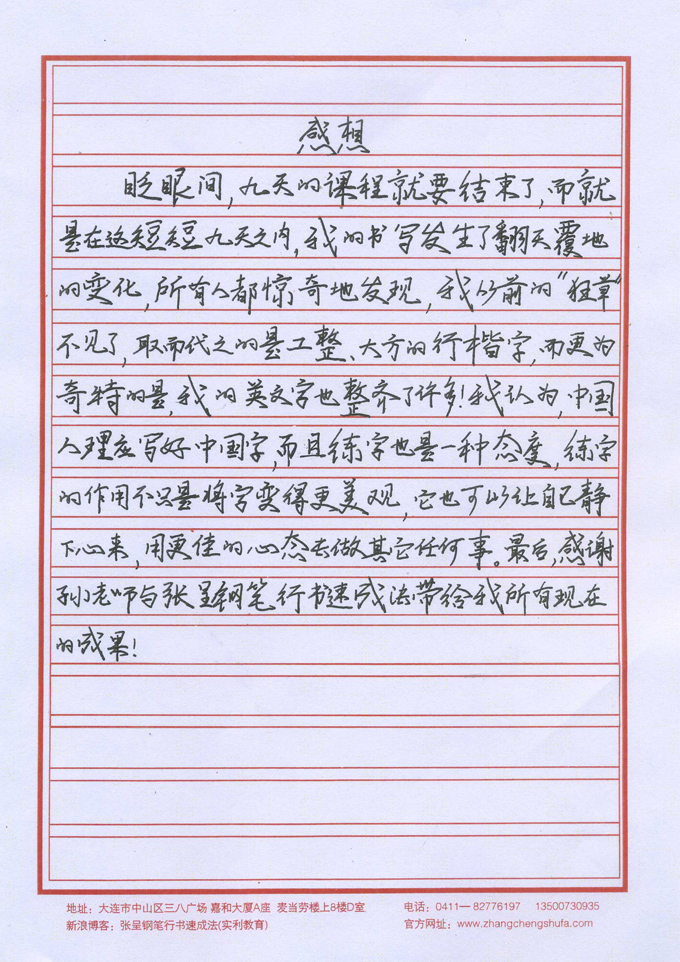 感想
眨眼间,九天的课程就要结束了,而就
是在这短短九天之内,我的书写发生了翻天覆地
的变化,所有人都惊奇地发现,我以前的“狂草”
不见了,取而代之的是工整、大方的行楷字,而更为
奇特的是,我的英文字也整齐了许多!我认为,中国
人理应写好中国字,而且练字也是一种态度,练字
的作用不只是将字变得更美观,它也可以让自己静
下心来,用更佳的心态去做其它任何事。最后,感谢
孙老师与张呈钢笔行书速成法带给我所有现在
的成果!
地址:大连市中山区三八广场 嘉和大厦A座 麦当劳楼上8楼D室 电话:0411—82776197 13500730935
新浪博客:张呈钢笔行书速成法(实利教育) 官方网址:www.zhangchengshufa.com